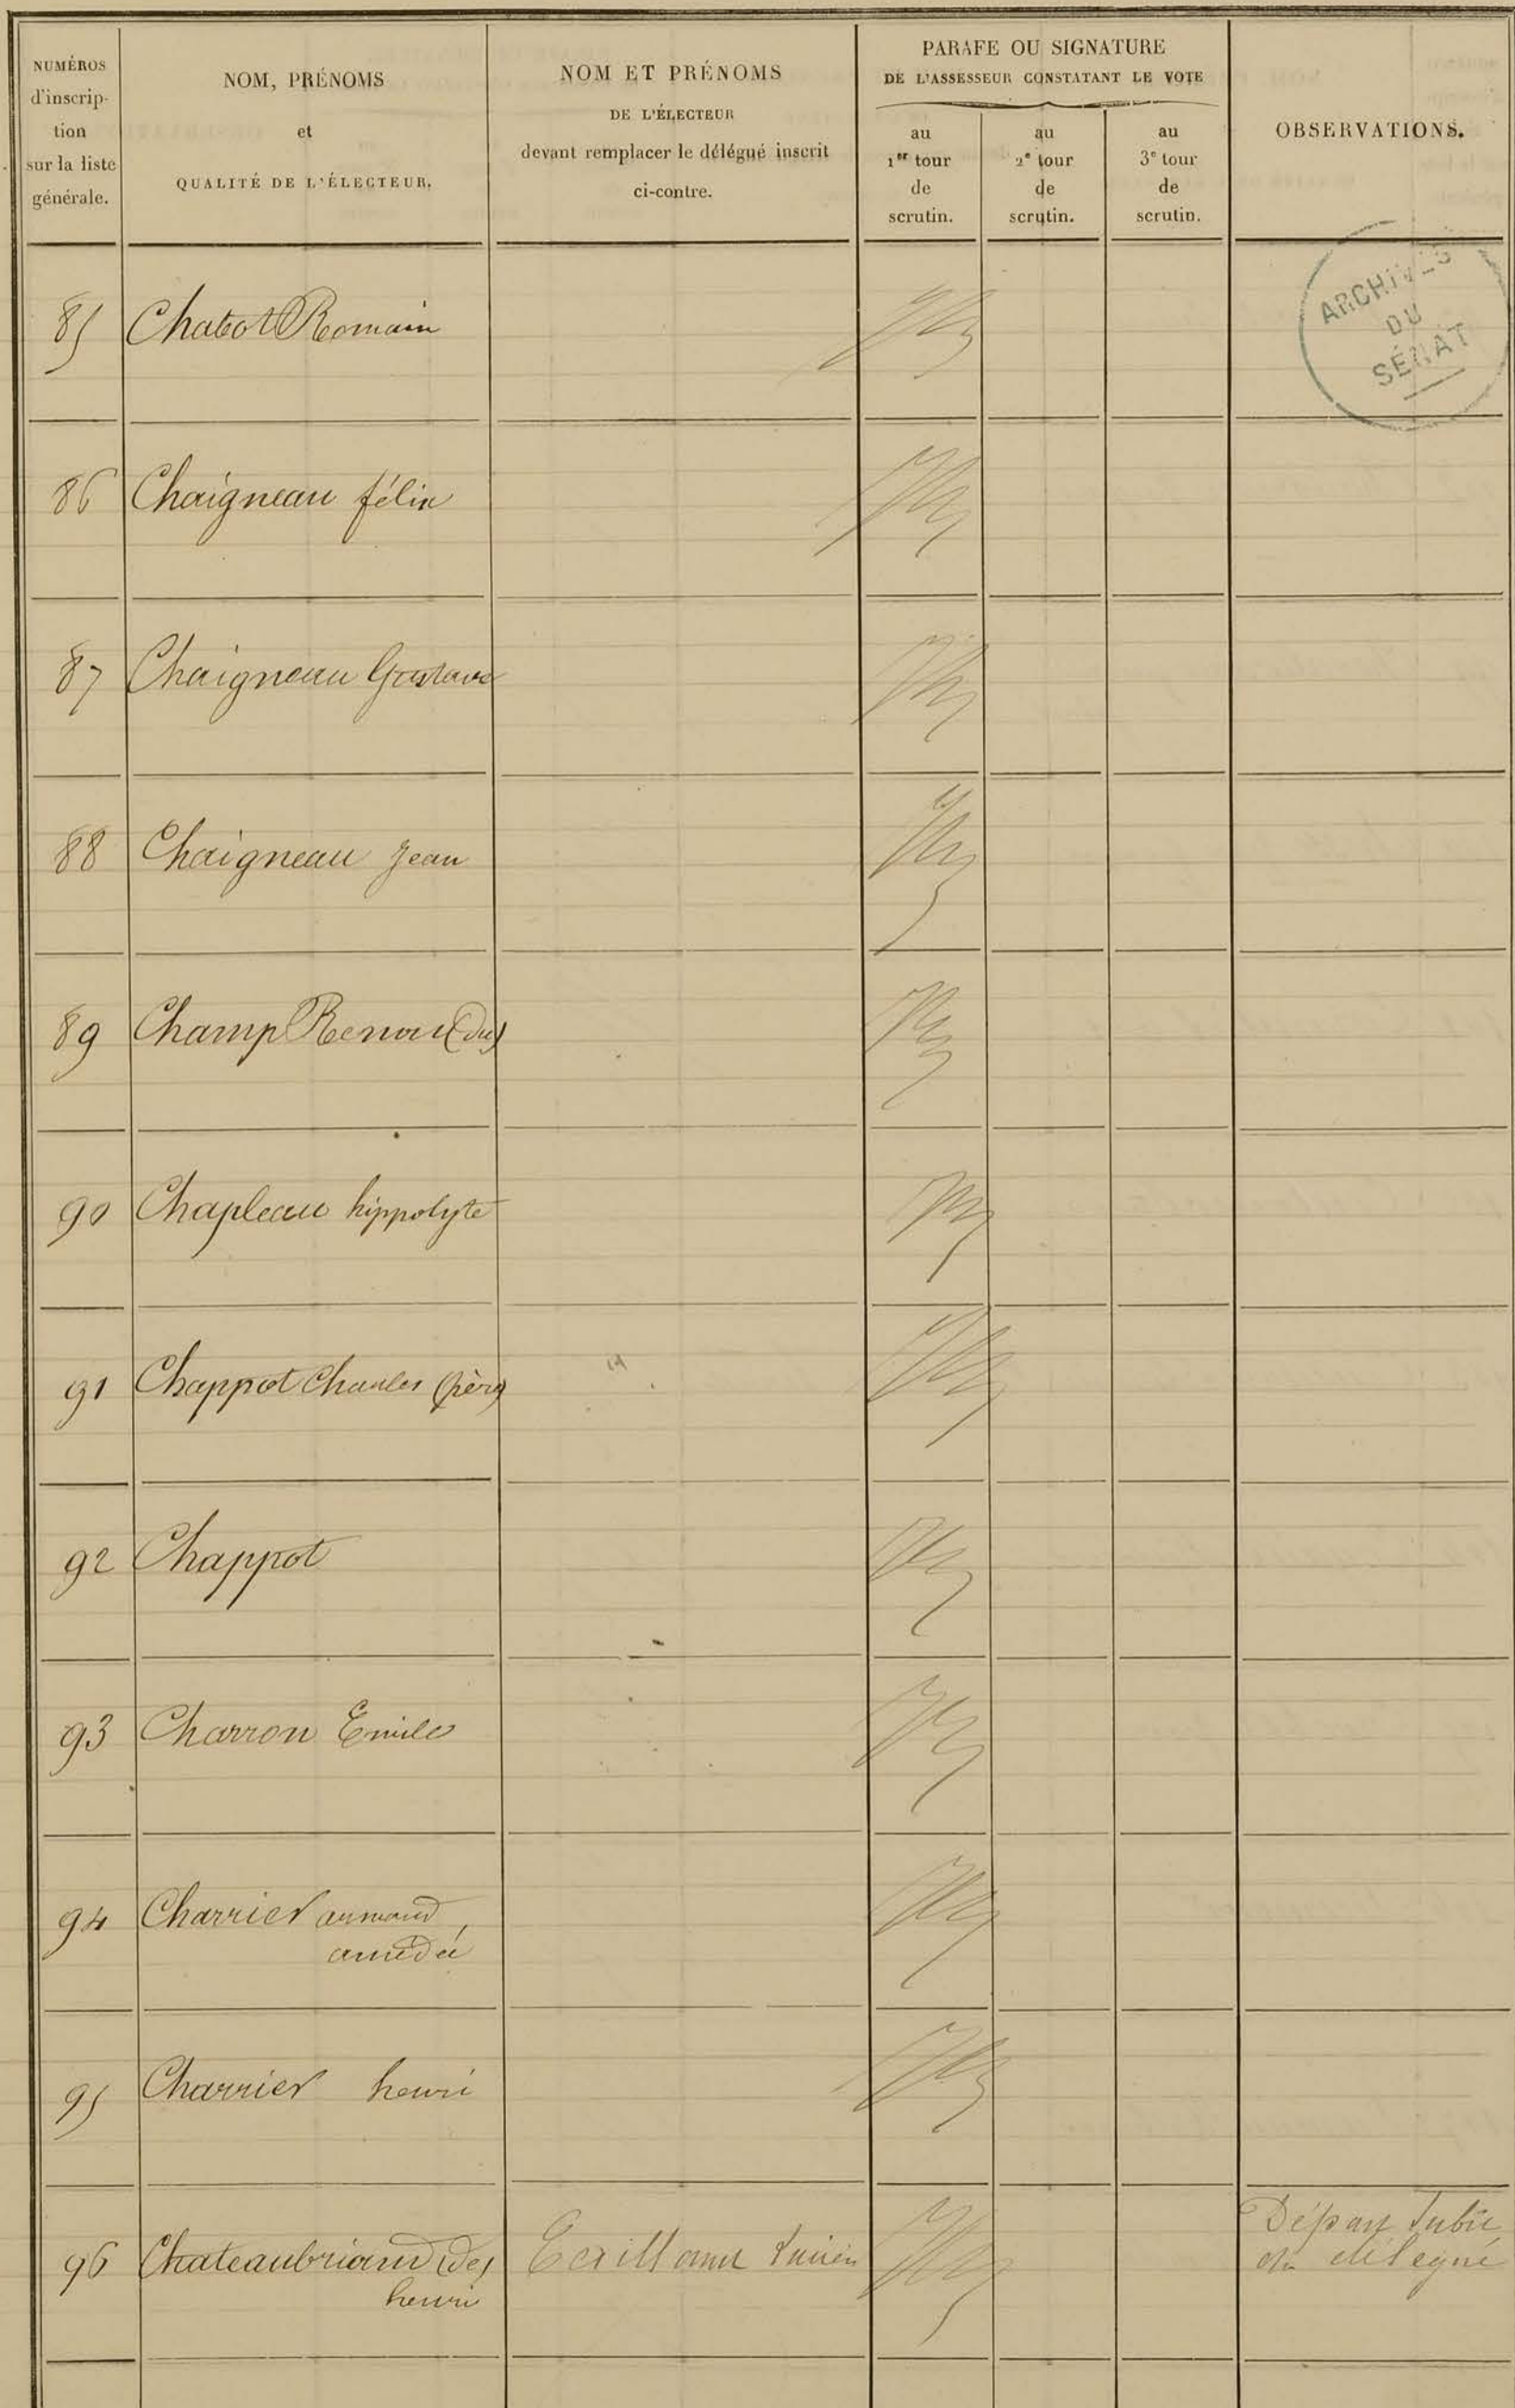 NUMÉROS
d'inscrip-
tion
sur la liste
générale.
NOM, PRÉNOMS
et
QUALITÉ DE L'ÉLECTEUR.
NOM ET PRÉNOMS
DE L'ÉLECTEUR
devant remplacer le délégué inscrit
ci-contre.
PARAFE OU SIGNATURE
DE L'ASSESSEUR CONSTATANT LE VOTE
au
1er tour
de
scrutin.
au
2e tour
de
scrutin.
au
3e tour
de
scrutin.
OBSERVATIONS.
ARCHIVES
DU
SÉNAT
85 Chabot Romain
86 Chaigneau félix
87 Chaigneau Gustave
88 Chaigneau Jean
89 Champ Renou (du)
90 Chapleau hippolyte
91 Chappot Charles (père)
92 Chappot
93 Charron Emile
94 Charrier armand
amédée
95 Charrier henri
96 Chateaubriand (de)
henri
Lucien
Départ subit
du délégué